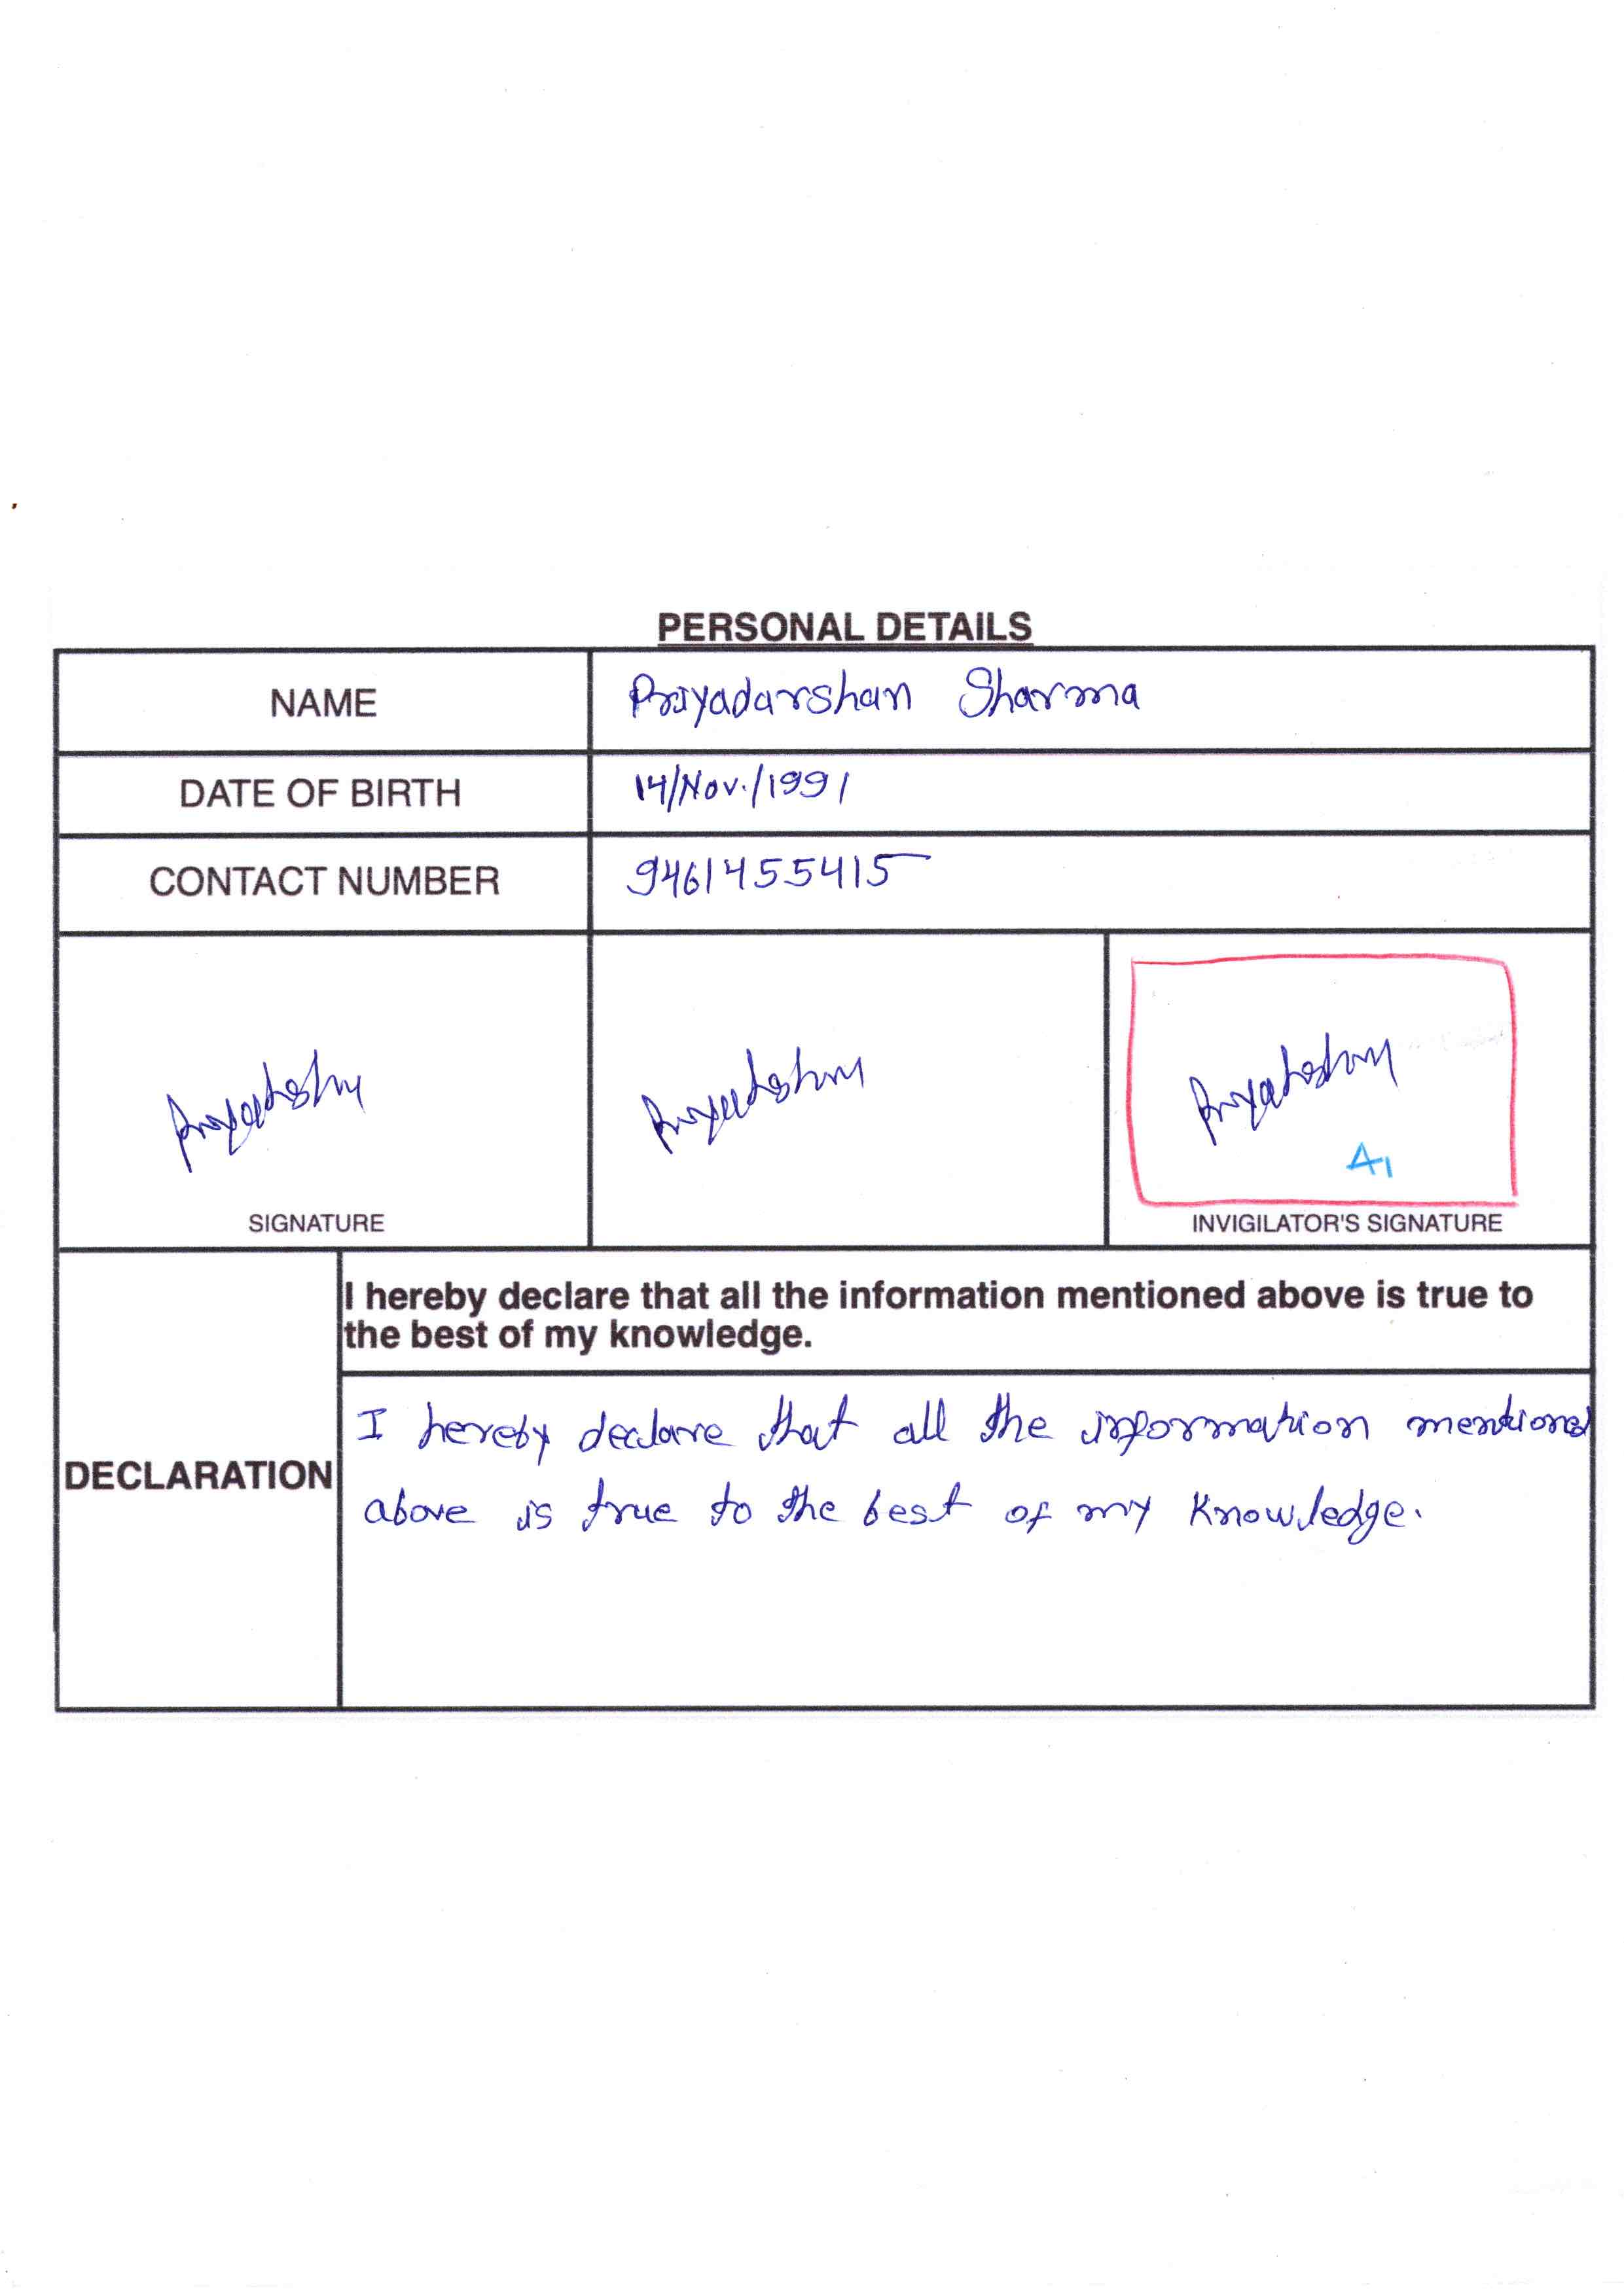 PERSONAL DETAILS
NAME
Priyadarshan Sharma
DATE OF BIRTH
14/Nov./1991
CONTACT NUMBER
9461455415
SIGNATURE
A1
INVIGILATOR'S SIGNATURE
I hereby declare that all the information mentioned above is true to
the best of my knowledge.
DECLARATION
I hereby declare that all the information mentioned
above is true to the best of my knowledge.